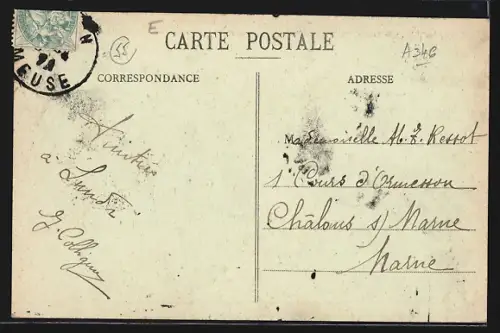 MEUSE
55
E
CARTE POSTALE
A346
CORRESPONDANCE
ADRESSE
Amitiés
à Lundi
G. Collignon
Mademoiselle M. L. Ressot
1 Cours d'Ormesson
Châlons s/ Marne
Marne